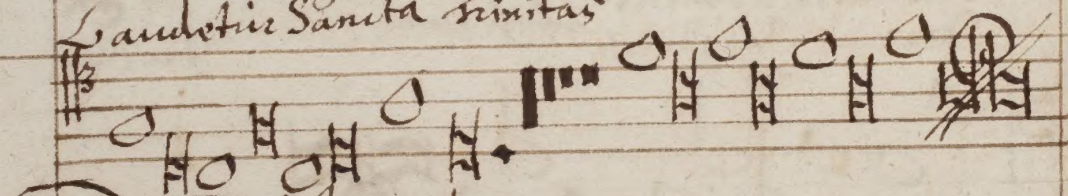 Laudetur Sancta trinitas